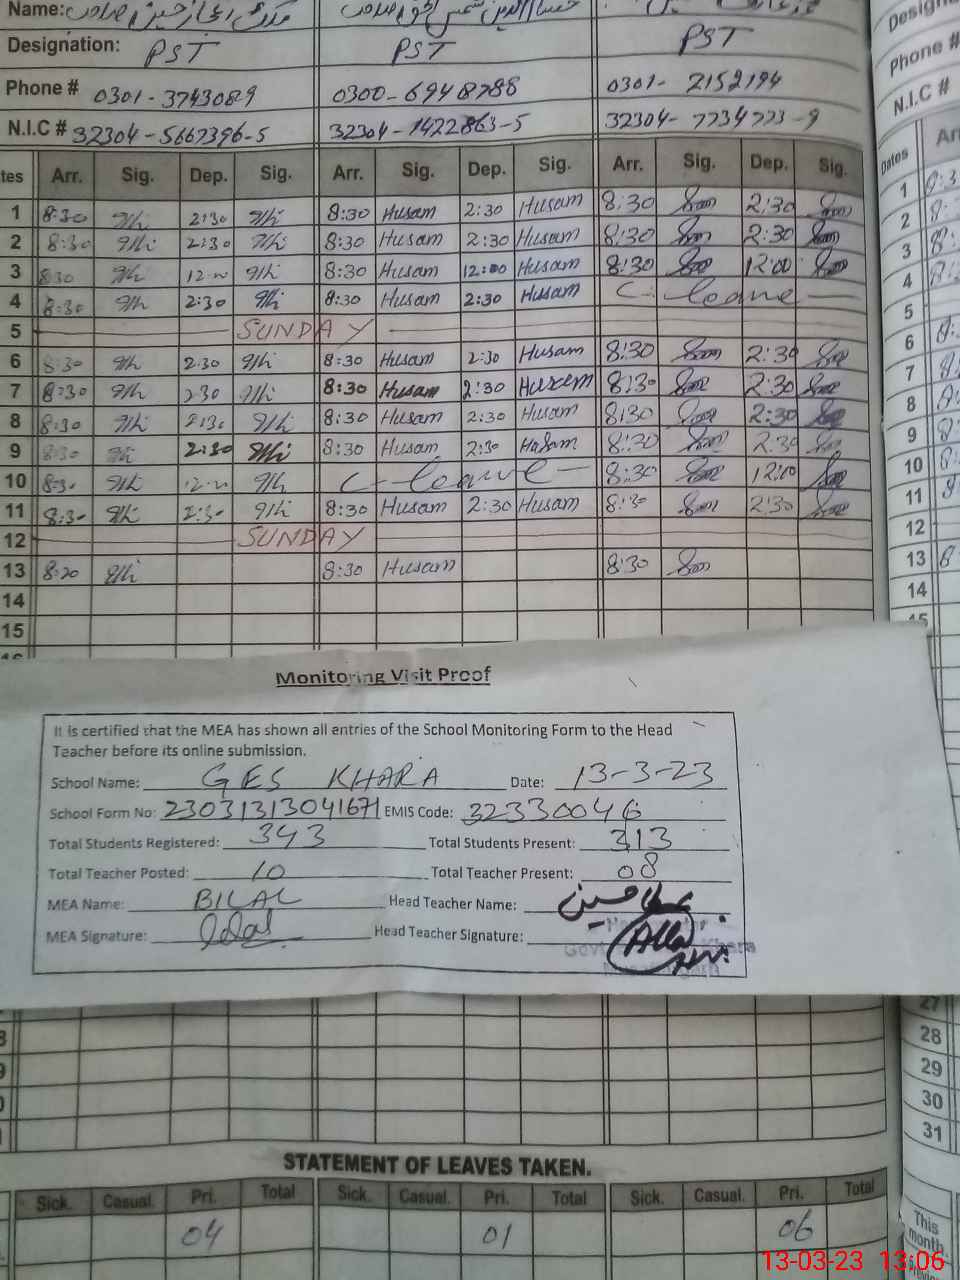 Name:
Designation: PST PST PST Design
Phone # 0301-3743089 0300-6948788 0301-2152194 Phone #
N.I.C # 32304-5667396-5 32304-1422863-5 32304-7734773-9 N.I.C #
tes Arr. Sig. Dep. Sig. Arr. Sig. Dep. Sig. Arr. Sig. Dep. Sig. Dates
1 8:30 2:30 8:30 Husam 2:30 Husam 8:30 2:30 1
2 8:30 2:30 8:30 Husam 2:30 Husam 8:30 2:30 2
3 8:30 12:00 8:30 Husam 12:00 Husam 8:30 12:00 3
4 8:30 2:30 8:30 Husam 2:30 Husam C-leave 4
5 SUNDAY 5
6 8:30 2:30 8:30 Husam 2:30 Husam 8:30 2:30 6
7 8:30 2:30 8:30 Husam 2:30 Husam 8:30 2:30 7
8 8:30 2:30 8:30 Husam 2:30 Husam 8:30 2:30 8
9 8:30 2:30 8:30 Husam 2:30 Husam 8:30 2:30 9
10 8:30 12:00 C-leave 8:30 12:00 10
11 8:30 2:30 8:30 Husam 2:30 Husam 8:30 2:30 11
12 SUNDAY 12
13 8:20 8:30 Husam 8:30 13
14 14
15 15
Monitoring Visit Proof
It is certified that the MEA has shown all entries of the School Monitoring Form to the Head
Teacher before its online submission.
School Name: GES KHARA Date: 13-3-23
School Form No: 23031313041671 EMIS Code: 32330046
Total Students Registered: 343 Total Students Present: 313
Total Teacher Posted: 10 Total Teacher Present: 08
MEA Name: BILAL Head Teacher Name:
MEA Signature: Bilal Head Teacher Signature:
27
28
29
30
31
STATEMENT OF LEAVES TAKEN.
Sick. Casual. Pri. Total Sick. Casual. Pri. Total Sick. Casual. Pri. Total
04 01 06
This
month.
13-03-23 13:06